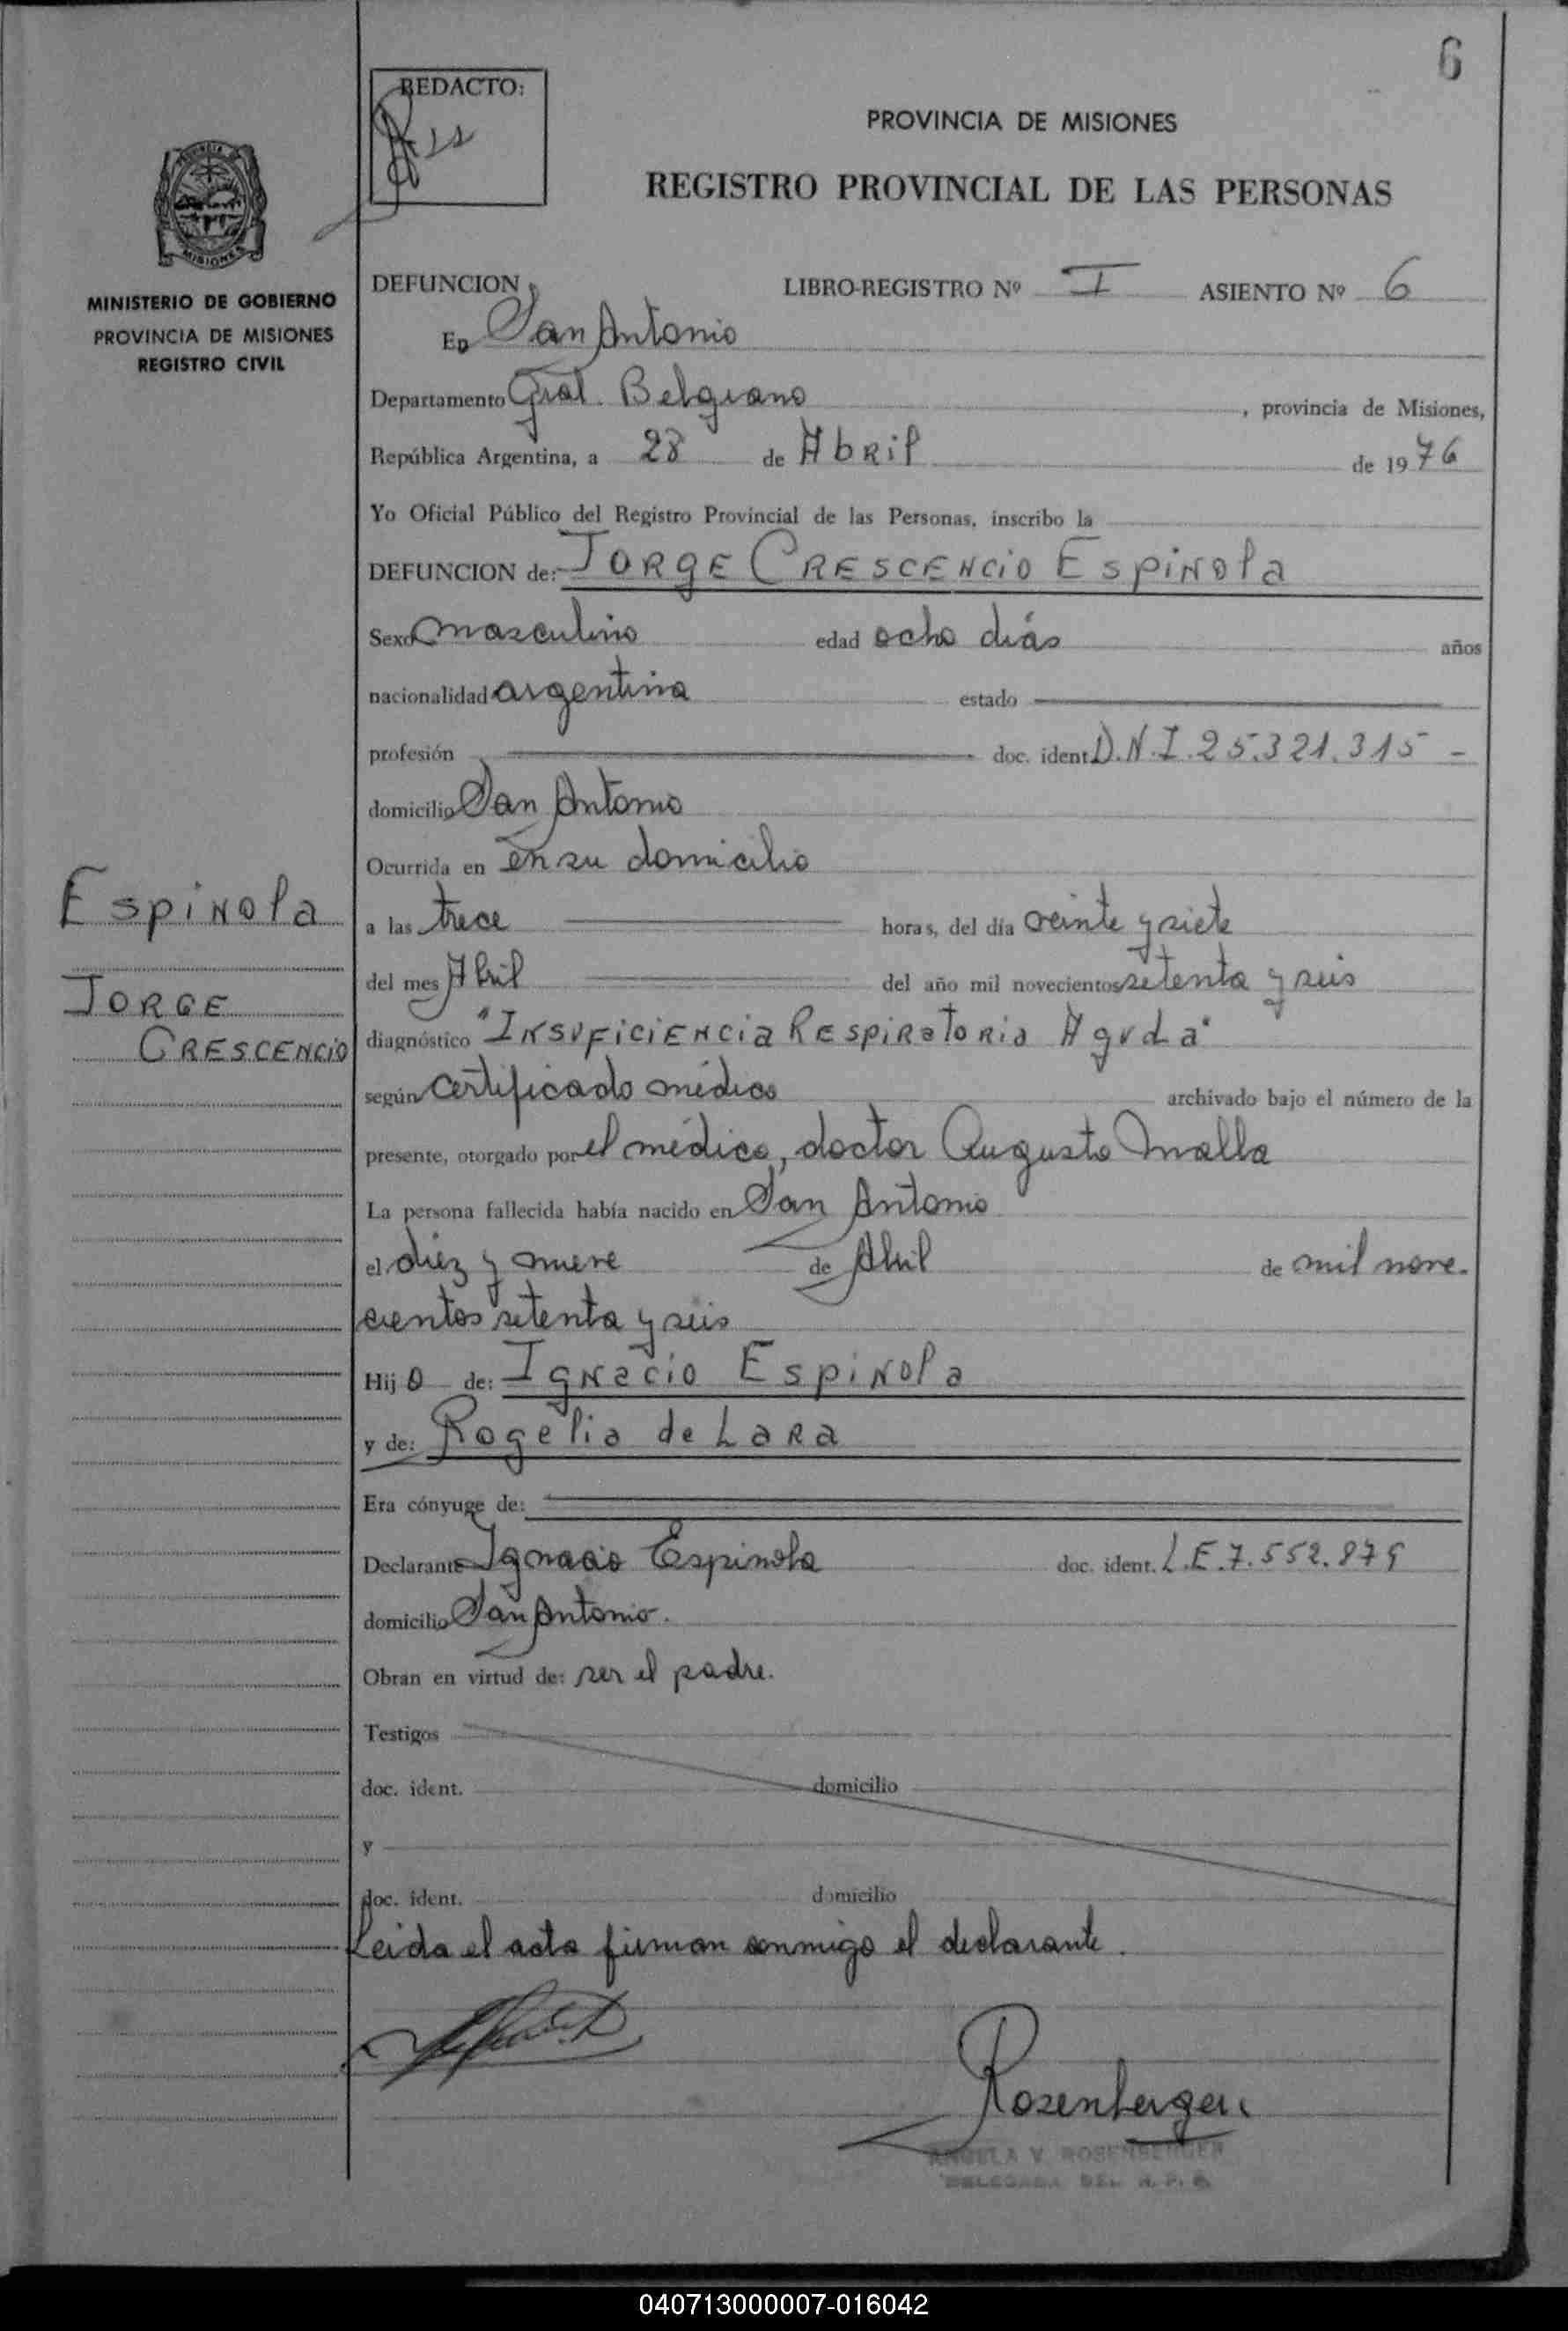 6
REDACTO:
PROVINCIA DE MISIONES
REGISTRO PROVINCIAL DE LAS PERSONAS
MISIONES
MINISTERIO DE GOBIERNO
PROVINCIA DE MISIONES
REGISTRO CIVIL
DEFUNCION LIBRO-REGISTRO Nº I ASIENTO Nº 6
En San Antonio
Departamento Gral. Belgrano, provincia de Misiones,
República Argentina, a 28 de Abril de 1976
Yo Oficial Público del Registro Provincial de las Personas, inscribo la
DEFUNCION de: JORGE CRESCENCIO Espinola
Sexo masculino edad ocho días años
nacionalidad argentina estado
profesión doc. ident. D.N.I. 25.321.315 -
domicilio San Antonio
Ocurrida en en su domicilio
Espinola
JORGE
CRESCENCIO
a las trece horas, del día veinte y siete
del mes Abril del año mil novecientos setenta y seis
diagnóstico "Insuficiencia Respiratoria Aguda"
según certificado médico archivado bajo el número de la
presente, otorgado por el médico, doctor Augusto Malla
La persona fallecida había nacido en San Antonio
el diez y nueve de Abril de mil nove-
cientos setenta y seis
Hijo de: Ignacio Espinola
y de: Rogelia de Lara
Era cónyuge de:
Declarante Ignacio Espinola doc. ident. L.E. 7.552.879
domicilio San Antonio.
Obran en virtud de: ser el padre.
Testigos
doc. ident. domicilio
y
doc. ident. domicilio
Leida el acta firman conmigo el declarante.
Rosenberger
ANGELA V. ROSENBERGER
DELEGADA DEL R. P. P.
040713000007-016042